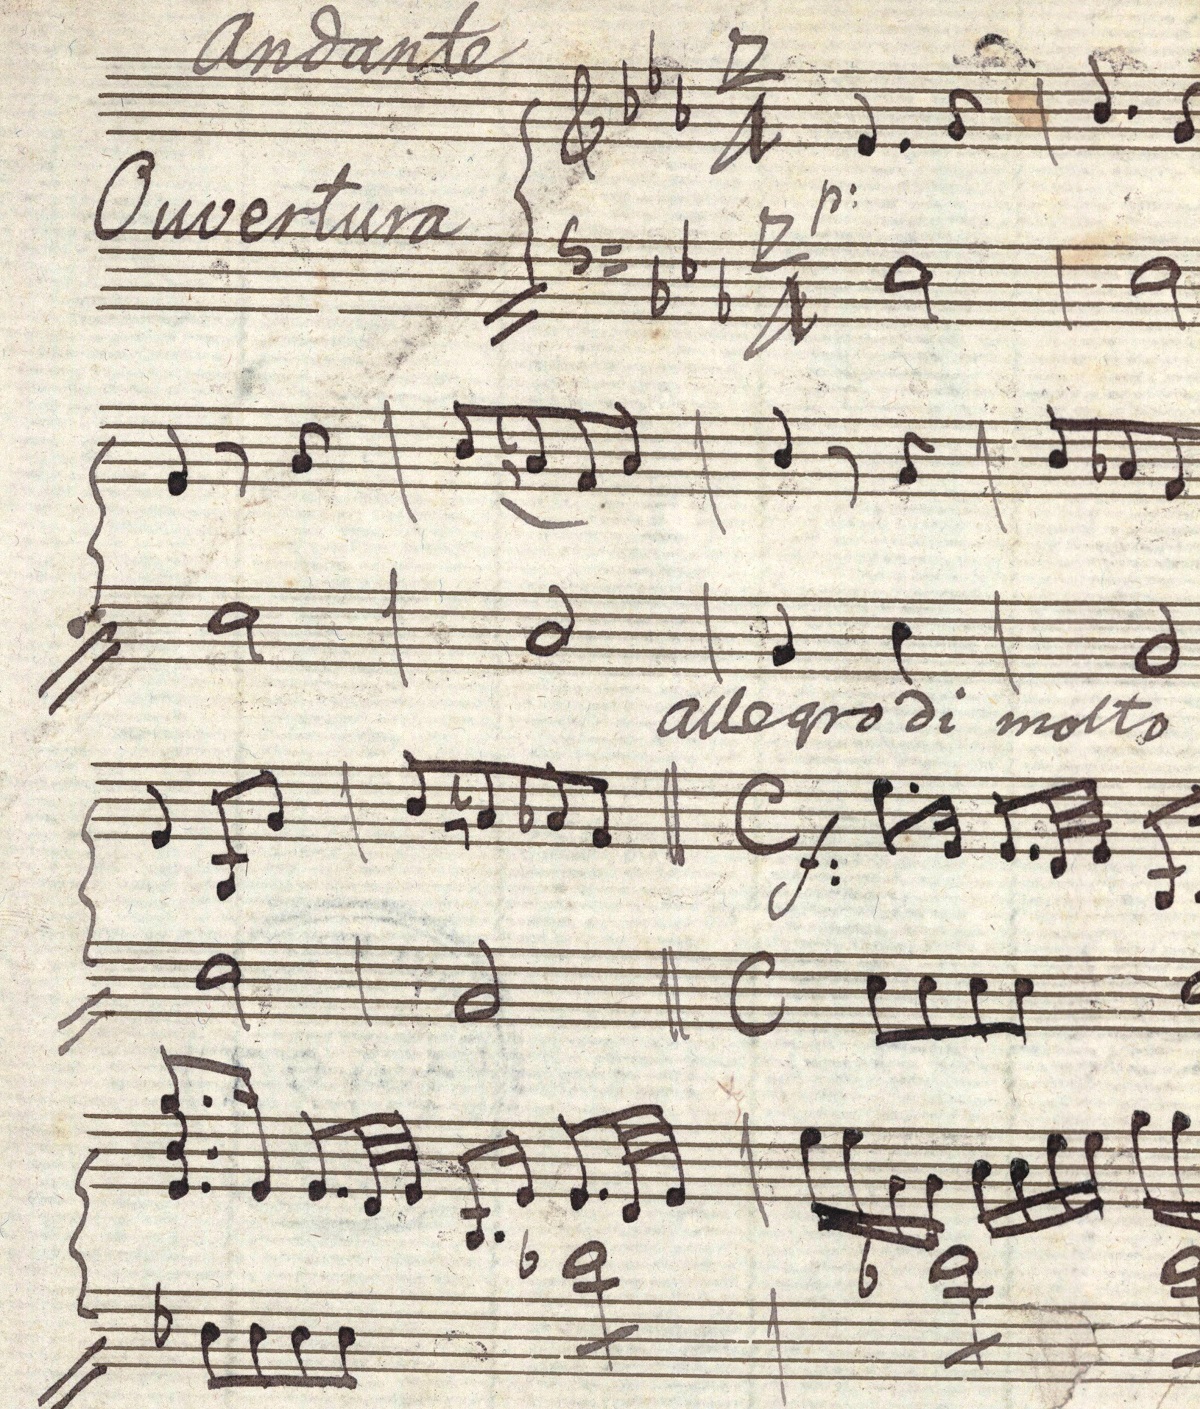 Andante
Ouvertura
2/4
p:
2/4
allegro di molto
C f:
C